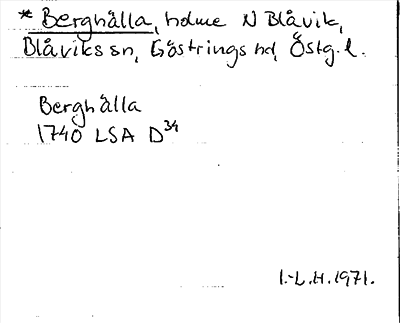 * Berghälla, holme N Blåvik,
Blåviks sn, Göstrings hd, Östg. l.
Berghälla
1740 LSA D34
I.-L.H. 1971.